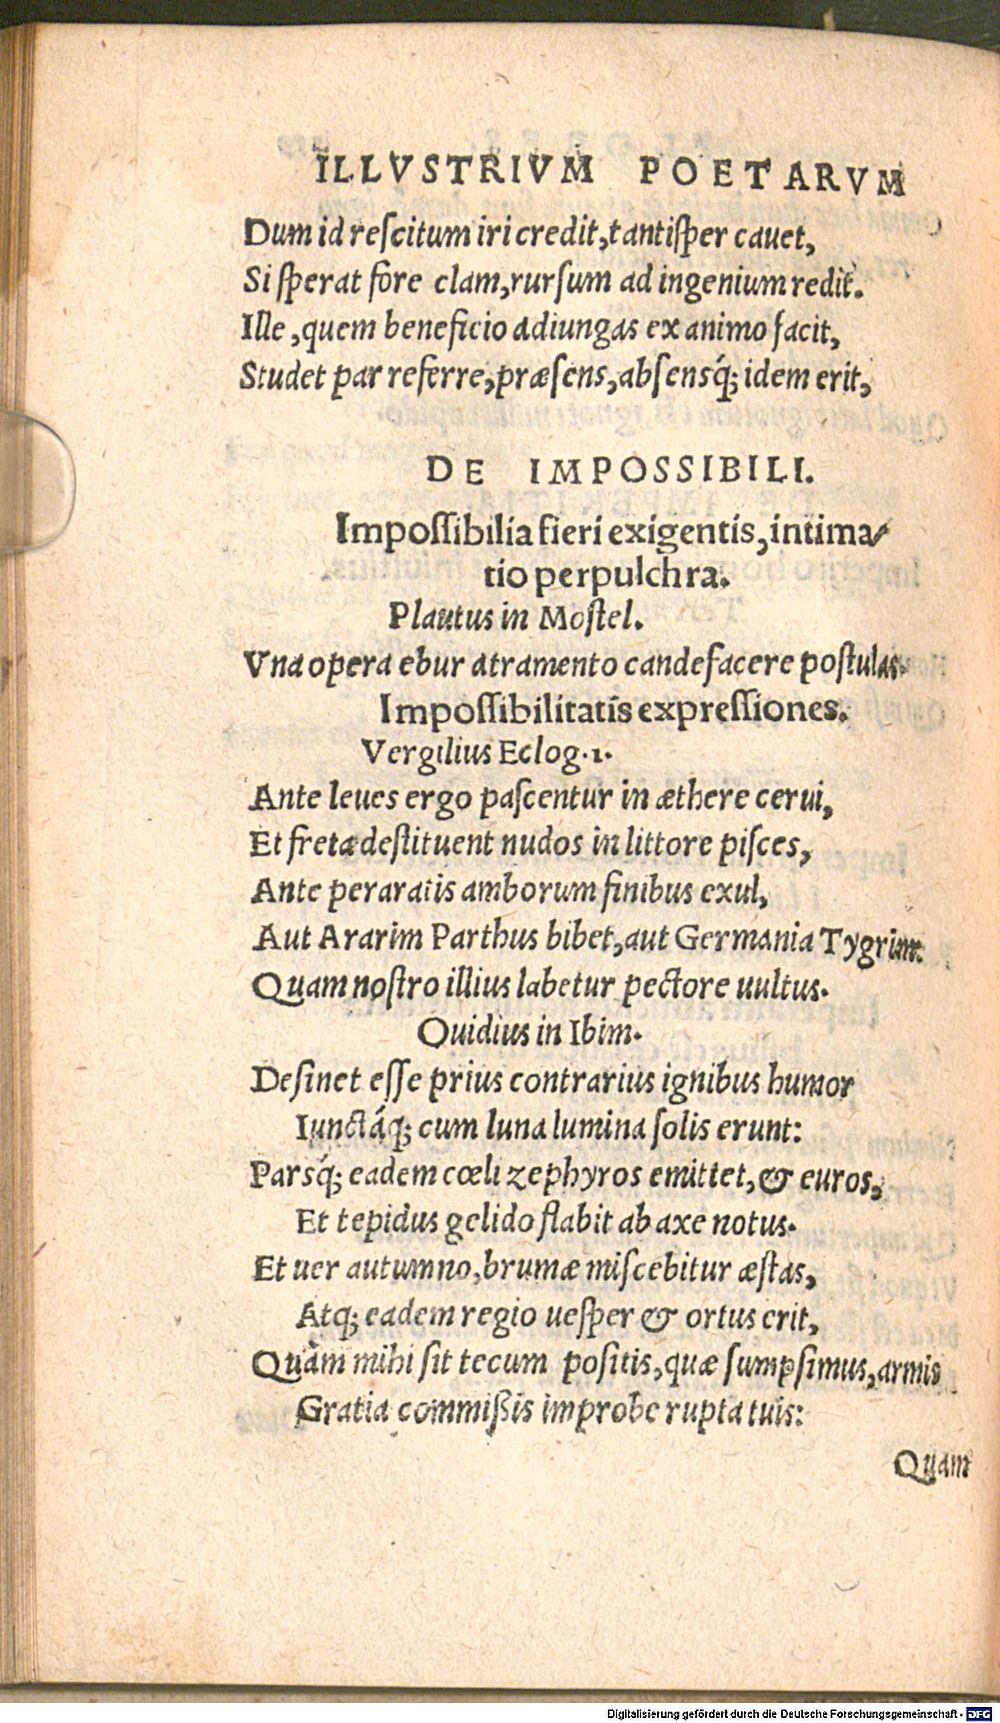 ILLVSTRIVM POETARVM
Dum id reſcitum iri credit, tantiſper cauet,
Si ſperat fore clam, rurſum ad ingenium redit.
Ille, quem beneficio adiungas ex animo facit,
Studet par referre, præſens, abſensq́; idem erit,
DE IMPOSSIBILI.
Impoſſibilia fieri exigentis, intima/
tio perpulchra.
Plautus in Moſtel.
Vna opera ebur atramento candefacere poſtulas.
Impoſſibilitatis expreſſiones.
Vergilius Eclog.1.
Ante leues ergo paſcentur in æthere cerui,
Et freta deſtituent nudos in littore piſces,
Ante peraratis amborum finibus exul,
Aut Ararim Parthus bibet, aut Germania Tygrim.
Quam noſtro illius labetur pectore uultus.
Ouidius in Ibim.
Deſinet eſſe prius contrarius ignibus humor
Iunctáq; cum luna lumina ſolis erunt:
Parsq́; eadem cœli zephyros emittet, & euros,
Et tepidus gelido flabit ab axe notus.
Et uer autumno, brumæ miſcebitur æſtas,
Atq; eadem regio ueſper & ortus erit,
Quàm mihi ſit tecum poſitis, quæ ſumpſimus, armis
Gratia commiſſis improbe rupta tuis:
Quam
Digitalisierung gefördert durch die Deutsche Forschungsgemeinschaft - DFG